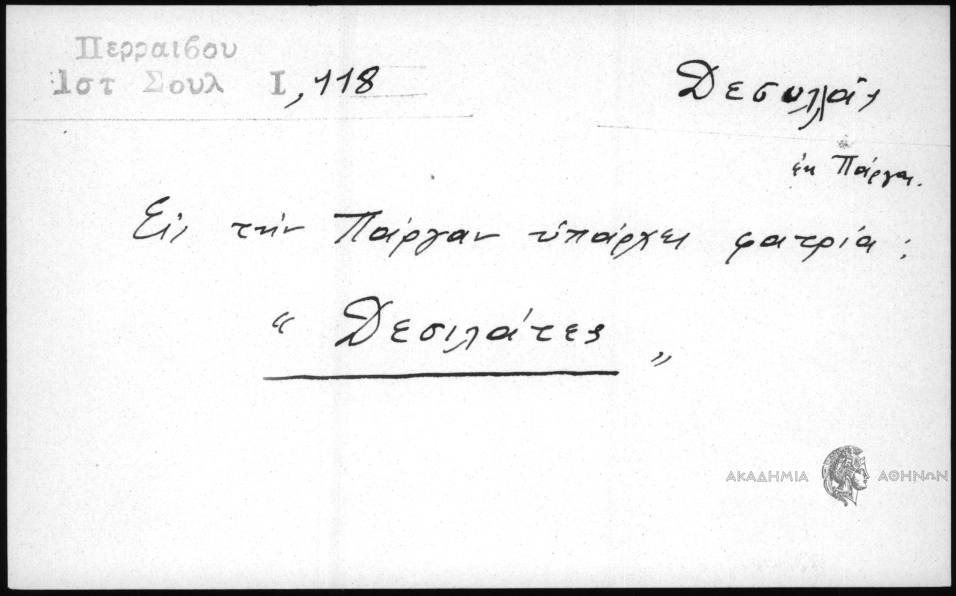 Περραιβου
Ιστ Σουλ Ι, 118
Δεσυλλᾶς
ἐκ Πάργας.
Εἰς τὴν Πάργαν ὑπάρχει φατρία:
“ Δεσιλάτες „
ΑΚΑΔΗΜΙΑ ΑΘΗΝΩΝ